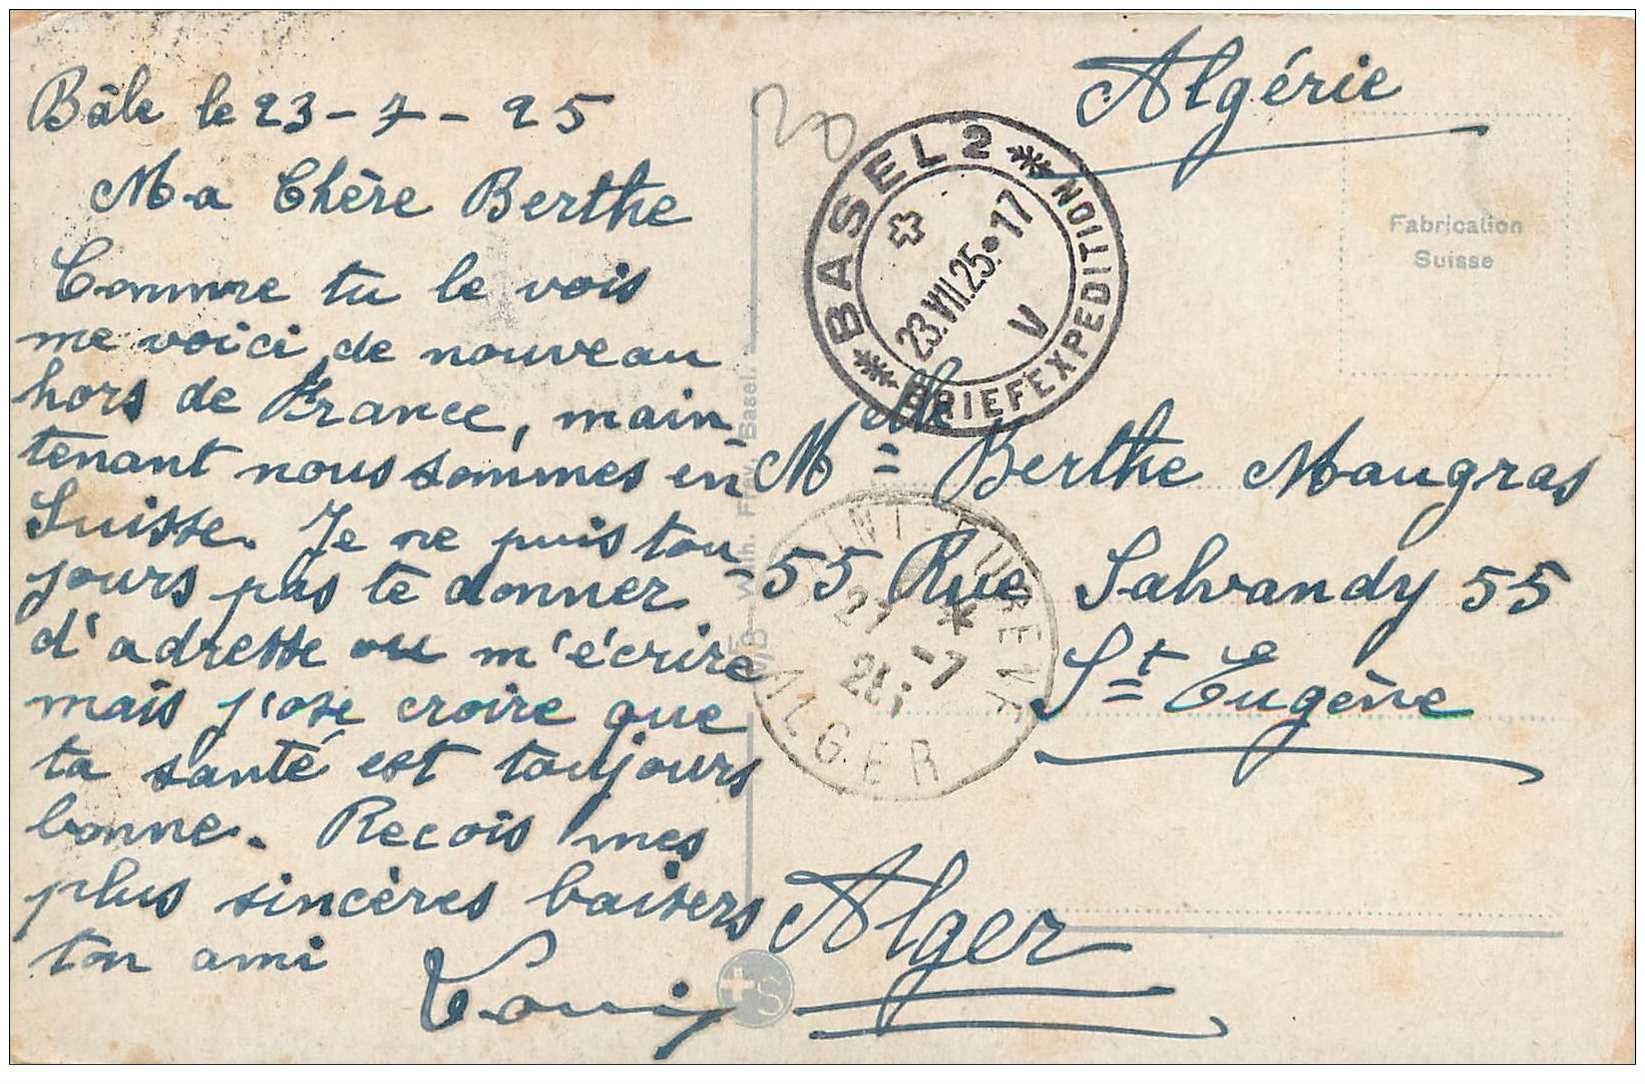 Bâle le 23-7-25
Ma Chère Berthe
Comme tu le vois
me voici de nouveau
hors de France, main
tenant nous sommes en
Suisse. Je ne puis tou
jours pas te donner
d'adresse ou m'écrire
mais j'ose croire que
ta santé est toujours
bonne. Recois mes
plus sincères baisers
ton ami
Louis
Algérie
BASEL 2
23.VII.25.17
V
BRIEFEXPEDITION
Fabrication
Suisse
Melle Berthe Maugras
55 Rue Salvandy 55
St Eugène
Alger
SAINT-EUGENE
27-7
25
ALGER
Wilh. Frey, Basel.
+S